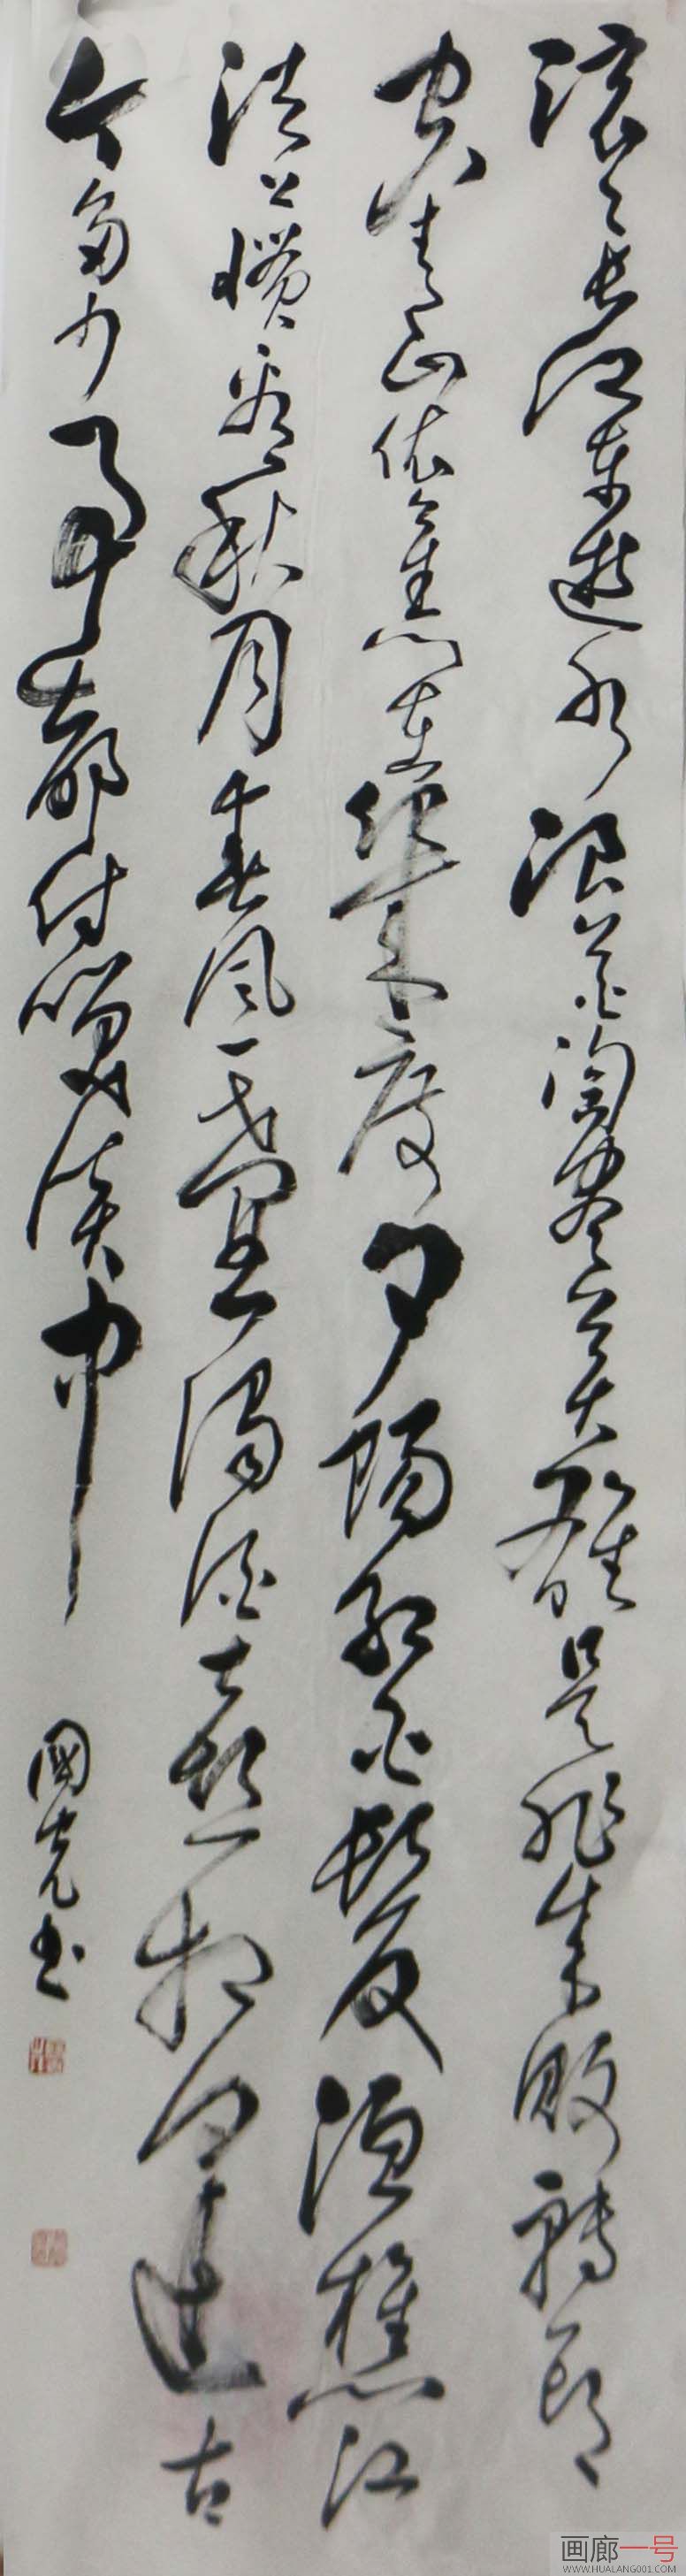 滚々长江东逝水浪花淘尽英雄是非成败转头
空青山依旧在几度夕阳红白髮渔樵江
渚上惯看秋月春风一壶浊酒喜相逢古
今多少事都付笑谈中
國 书
画廊一号
WWW.HUALANG001.COM